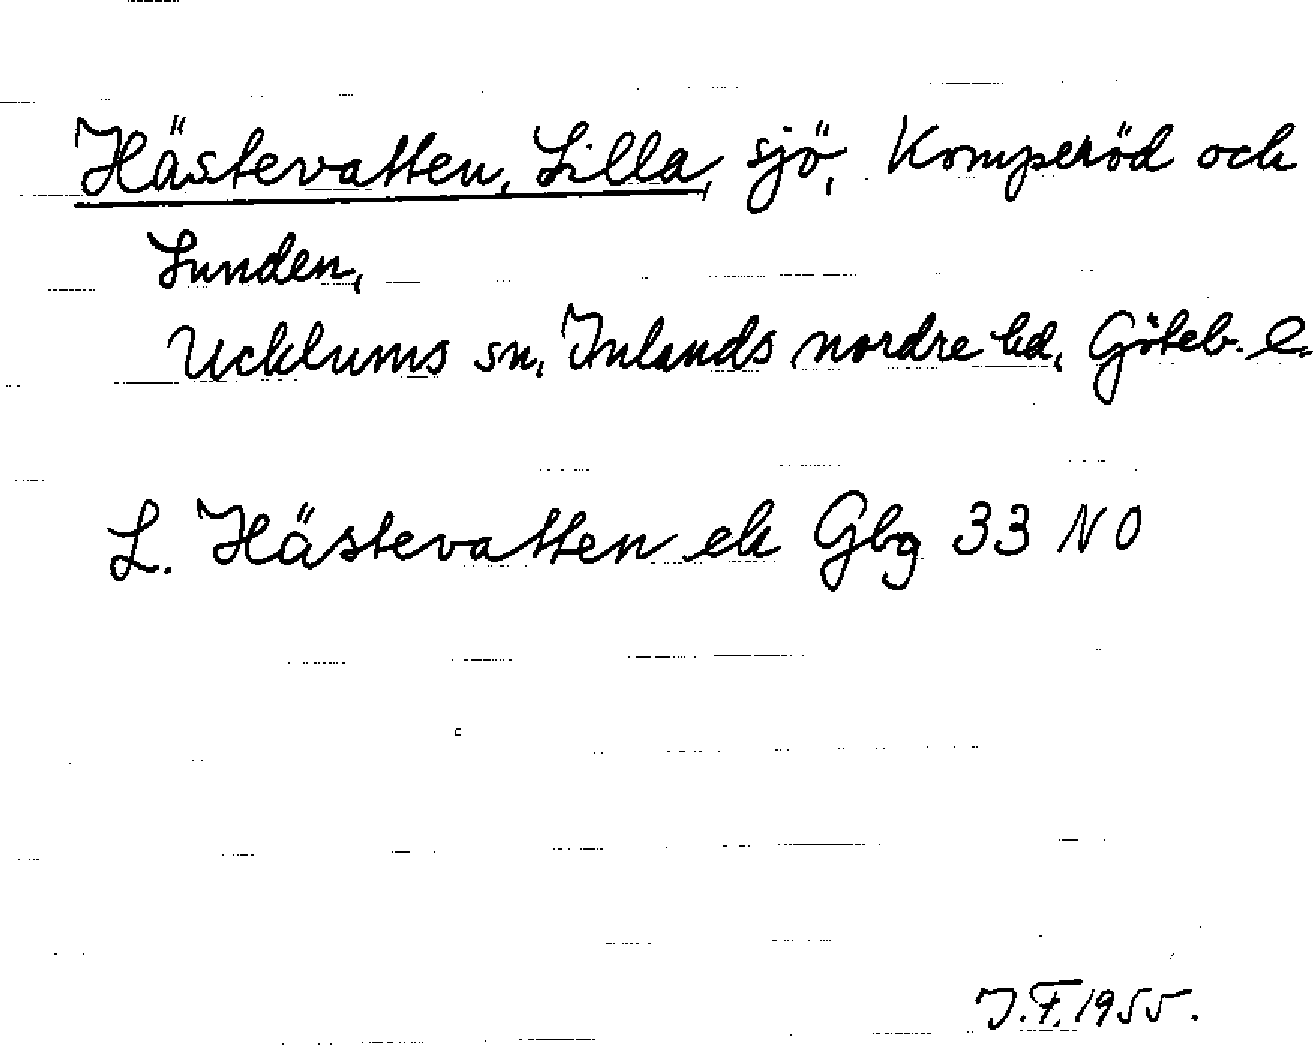 Hästevatten, Lilla, sjö, Komperöd och
Lunden,
Ucklums sn, Inlands nordre hd, Göteb. l.
L. Hästevatten ek Gbg 33 NO
J.F. 1955.